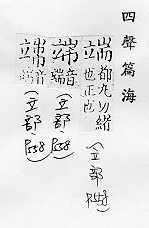 四聲篇海
端都丸切緒
也正也
(立部 P.558)
端音端
(立部 P.558)
端音端
(立部 P.558)